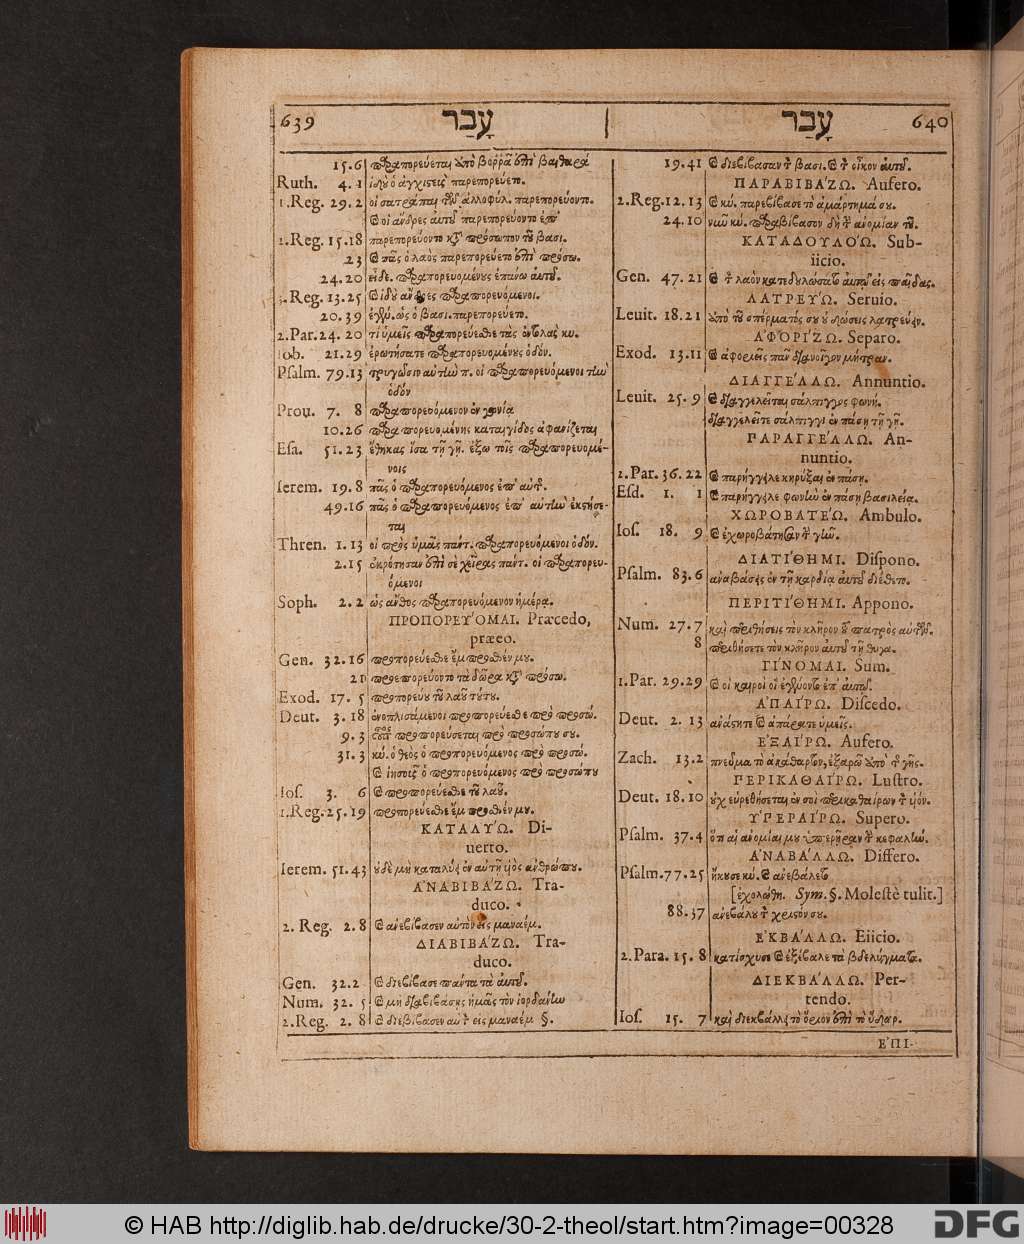 639 עָבַר
15.6 παραπορεύεται ὑπὸ βορρᾶ ἐπὶ βαιθαρὰ
Ruth. 4. 1 ἰδοὺ ὁ ἀγχιστεὺς παρεπορεύετο.
1.Reg. 29.2 οἱ σατράπαι τῶν ἀλλοφύλ. παρεπορεύοντο.
καὶ οἱ ἄνδρες αὐτοῦ παρεπορεύοντο ἐπ'
2.Reg. 15.18 παρεπορεύοντο κατὰ πρόσωπον τοῦ βασι.
23 καὶ πᾶς ὁ λαὸς παρεπορεύετο ἐπὶ πρόσω.
24.20 εἶδε. παραπορευομένους ἐπάνω αὐτοῦ.
3.Reg. 13.25 καὶ ἰδοὺ ἄνδρες παραπορευόμενοι.
20.39 ἐγένε. ὡς ὁ βασι. παρεπορεύετο.
2.Par. 24. 20 τί ὑμεῖς παραπορεύεσθε τὰς ἐντολὰς κυ.
Iob. 21.29 ἐρωτήσατε παραπορευομένους ὁδόν.
Psalm. 79.13 τρυγῶσιν αὐτὴν π. οἱ παραπορευόμενοι τὴν
ὁδόν
Prou. 7. 8 παραπορευόμενον ἐν γωνίᾳ
10.26 παραπορευομένης καταιγίδος ἀφανίζεται
Esa. 51.23 ἔθηκας ἴσα τῇ γῇ. ἔξω τοῖς παραπορευομέ-
νοις
Ierem. 19. 8 πᾶς ὁ παραπορευόμενος ἐπ' αὐτῆς.
49.16 πᾶς ὁ παραπορευόμενος ἐπ' αὐτὴν ἐκστήσε-
ται
Thren. 1. 13 οἱ πρὸς ὑμᾶς πάντ. παραπορευόμενοι ὁδόν.
2.15 ἐκρότησαν ἐπὶ σὲ χεῖρας πάντ. οἱ παραπορευ-
όμενοι
Soph. 2. 2 ὡς ἄνθος παραπορευόμενον ἡμέρα.
ΠΡΟΠΟΡΕΎΟΜΑΙ. Præcedo,
præeo.
Gen. 32.16 προπορεύεσθε ἔμπροσθέν μου.
21 προεπορεύοντο τὰ δῶρα κατὰ πρόσω.
Exod. 17. 5 προπορεύου τοῦ λαοῦ τούτου.
Deut. 3. 18 ἐνοπλισάμενοι προπορεύεσθε πρὸ προσώ.
9. 3 οὗτος προπορεύσεται πρὸ προσώπου σου.
31. 3 κύ. ὁ θεὸς ὁ προπορευόμενος πρὸ προσώ.
καὶ ἰησοῦς ὁ προπορευόμενος πρὸ προσώπου
Ios. 3. 6 καὶ προπορεύεσθε τοῦ λαοῦ.
1.Reg. 25.19 προπορεύεσθε ἔμπροσθέν μου.
ΚΑΤΑΛΎΩ. Di-
uerto.
Ierem. 51. 43 οὐδὲ μὴ καταλύσῃ ἐν αὐτῇ υἱὸς ἀνθρώπου.
ἈΝΑΒΙΒΆΖΩ. Tra-
duco.
2. Reg. 2. 8 καὶ ἀνεβίβασεν αὐτὸν εἰς μαναέμ.
ΔΙΑΒΙΒΆΖΩ. Tra-
duco.
Gen. 32.2 καὶ διεβίβασε πάντα τὰ αὐτοῦ.
Num. 32. 5 καὶ μὴ διαβιβάσῃς ἡμᾶς τὸν ἰορδάνην
2.Reg. 2. 8 καὶ διεβίβασεν αὐτὸν εἰς μαναέμ §.
עָבַר 640
19.41 καὶ διεβίβασαν τὸν βασι. καὶ τὸν οἶκον αὐτοῦ.
ΠΑΡΑΒΙΒΆΖΩ. Aufero.
2.Reg. 12. 13 καὶ κύ. παρεβίβασε τὸ ἁμάρτημά σου.
24.10 νῦν κύ. παραβίβασον δὴ τὴν ἀνομίαν τοῦ.
ΚΑΤΑΔΟΥΛΟΏ. Sub-
iicio.
Gen. 47. 21 καὶ τὸν λαὸν κατεδουλώσατο αὐτῷ εἰς παῖδας.
ΛΑΤΡΕΎΩ. Seruio.
Leuit. 18.21 ἀπὸ τοῦ σπέρματός σου οὐ δώσεις λατρεύειν.
ἈΦΟΡΊΖΩ. Separo.
Exod. 13.11 καὶ ἀφοριεῖς πᾶν διανοῖγον μήτραν.
ΔΙΑΓΓΈΛΛΩ. Annuntio.
Leuit. 25. 9 καὶ διαγγελεῖται σάλπιγγος φωνῇ.
διαγγελεῖτε σάλπιγγι ἐν πάσῃ τῇ γῇ.
ΠΑΡΑΓΓΈΛΛΩ. An-
nuntio.
2.Par. 36. 22 καὶ παρήγγειλε κηρύξαι ἐν πάσῃ.
Esd. 1. 1 καὶ παρήγγειλε φωνὴν ἐν πάσῃ βασιλείᾳ.
ΧΩΡΟΒΑΤΈΩ. Ambulo.
Ios. 18. 9 καὶ ἐχωροβάτησαν τὴν γῆν.
ΔΙΑΤΊΘΗΜΙ. Dispono.
Psalm. 83. 6 ἀναβάσεις ἐν τῇ καρδίᾳ αὐτοῦ διέθετο.
ΠΕΡΙΤΊΘΗΜΙ. Appono.
Num. 27. 7 καὶ περιθήσεις τὸν κλῆρον τοῦ πατρὸς αὐτῶν.
8 περιθήσετε τὸν κλῆρον αὐτοῦ τῇ θυγα.
ΓΊΝΟΜΑΙ. Sum.
1.Par. 29.29 καὶ οἱ καιροὶ οἳ ἐγένοντο ἐπ' αὐτοῦ.
ἈΠΑΊΡΩ. Discedo.
Deut. 2. 13 ἀνάστητε καὶ ἀπάρατε ὑμεῖς.
ἘΞΑΊΡΩ. Aufero.
Zach. 13.2 πνεῦμα τὸ ἀκάθαρτον, ἐξαρῶ ἀπὸ τῆς γῆς.
ΠΕΡΙΚΑΘΑΊΡΩ. Lustro.
Deut. 18.10 οὐχ εὑρεθήσεται ἐν σοὶ περικαθαίρων τὸν υἱόν.
ὙΠΕΡΑΊΡΩ. Supero.
Psalm. 37.4 ὅτι αἱ ἀνομίαι μου ὑπερῆραν τὴν κεφαλήν.
ἈΝΑΒΆΛΛΩ. Differo.
Psalm. 77.25 ἤκουσε κύ. καὶ ἀνεβάλετο
[ἐχολώθη. Sym. §. Molestè tulit.]
88.37 ἀνεβάλου τὸν χριστόν σου.
ἘΚΒΆΛΛΩ. Eiicio.
2.Para. 15. 8 κατίσχυσε καὶ ἐξέβαλε τὰ βδελύγματα.
ΔΙΕΚΒΆΛΛΩ. Per-
tendo.
Ios. 15. 7 καὶ διεκβάλλει τὸ ὅριον ἐπὶ τὸ ὕδωρ.
ἘΠΙ-
© HAB http://diglib.hab.de/drucke/30-2-theol/start.htm?image=00328
DFG